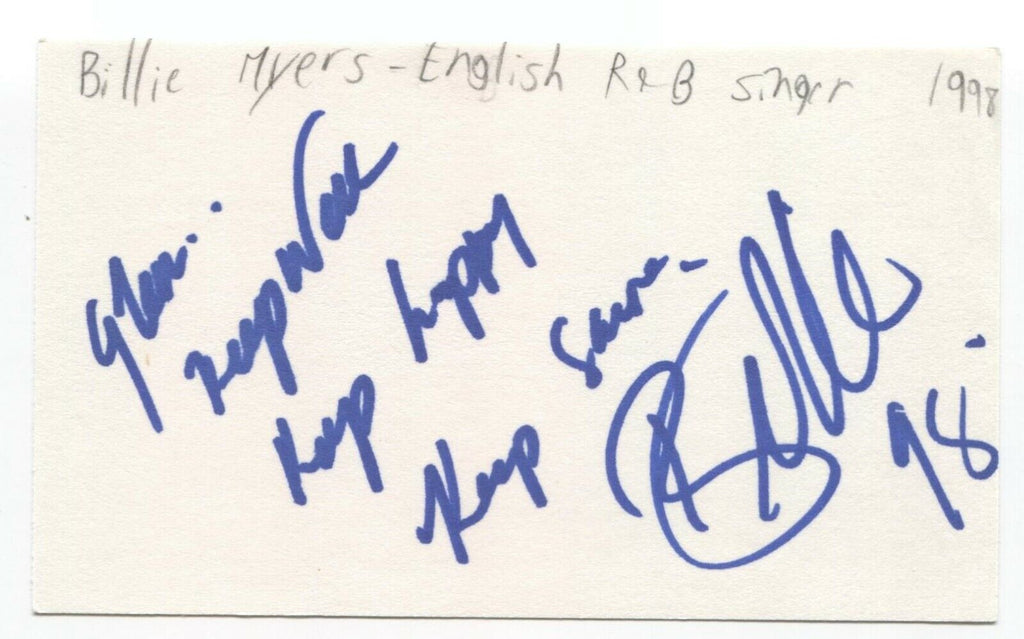 Billie Myers - English R&B singer 1998
Keep Well
Keep happy
Keep Sane.
Billie 98.